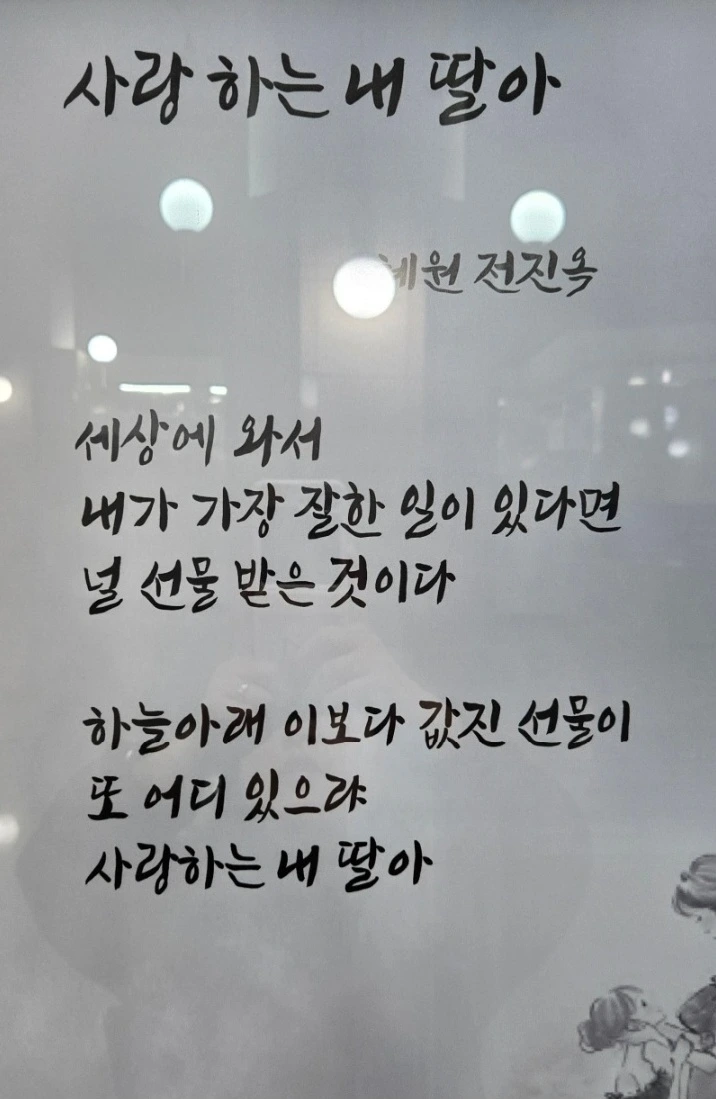 사랑하는 내 딸아
전진옥
세상에 와서
내가 가장 잘한 일이 있다면
널 선물 받은 것이다
하늘아래 이보다 값진 선물이
또 어디 있으랴
사랑하는 내 딸아